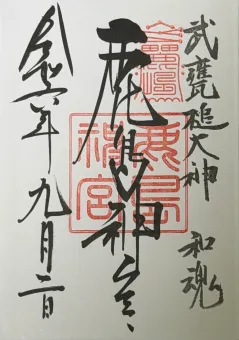 武甕槌大神 和魂
鹿島神宮
鹿島神宮
令和六年九月二日